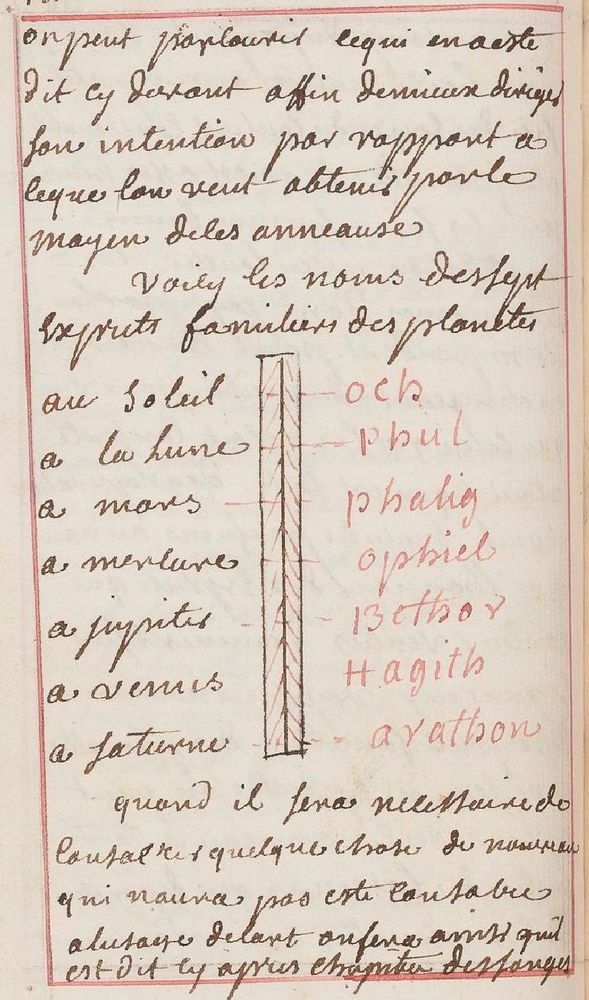 on peut parcourir ce qui en a este
dit cy devant affin de mieux diriger
son intention par rapport a
ce que lon veut obtenir par le
moyen de ces anneause
voicy les noms des sept
Esprits familiers des planetes
au Soleil och
a la lune phul
a mars phalig
a mercure ophiel
a jupiter Bethor
a venus Hagith
a saturne arathon
quand il sera necessaire de
consacrer quelque chose de nouveau
qui naura pas este consacré
a lusage de lart on fera ainsi quil
est dit cy apres chapitre des